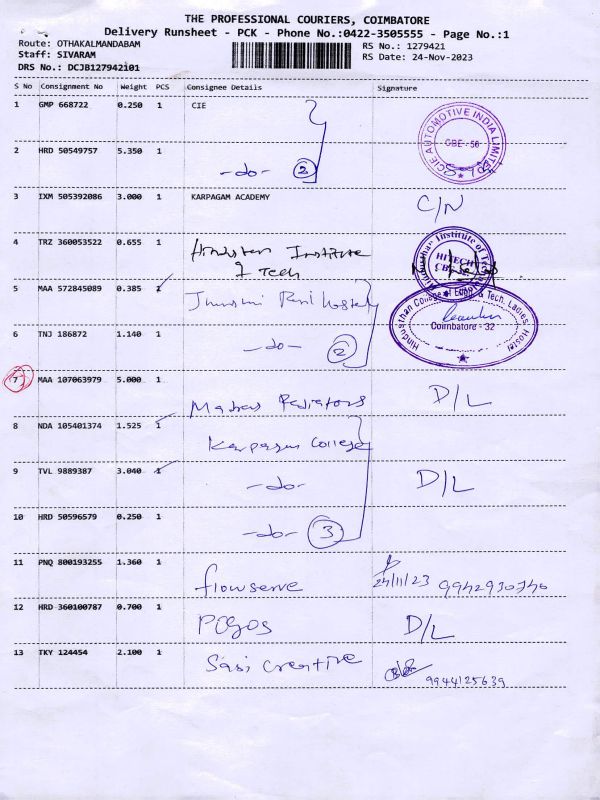 THE PROFESSIONAL COURIERS, COIMBATORE
Delivery Runsheet - PCK - Phone No.:0422-3505555 - Page No.:1
Route: OTHAKALMANDABAM RS No.: 1279421
Staff: SIVARAM RS Date: 24-Nov-2023
DRS No.: DCJB127942101
S No Consignment No Weight PCS Consignee Details Signature
1 GMP 668722 0.250 1 CIE
CIE AUTOMOTIVE INDIA LIMITED
CBE - 50
2 HRD 50549757 5.350 1
-do- 2
3 IXM 505392086 3.000 1 KARPAGAM ACADEMY C/N
4 TRZ 360053522 0.655 1 Hindustan Institute
of Tech
Hindusthan Institute of Tech
HITECH
5 MAA 572845089 0.385 1 Rani Hostel
Hindusthan College of Engg & Tech. Ladies Hostel
Coimbatore - 32
6 TNJ 186872 1.140 1
-do- 2
7 MAA 107063979 5.000 1
Madras Radiators D/L
8 NDA 105401374 1.525 1
Karpagam College
9 TVL 9889387 3.040 1
-do- D/L
10 HRD 50596579 0.250 1
-do- 3
11 PNQ 800193255 1.360 1
flowserve 24/11/23 9942930740
12 HRD 360100787 0.700 1
Pogos D/L
13 TKY 124454 2.100 1
Sasi Creative 9944125639